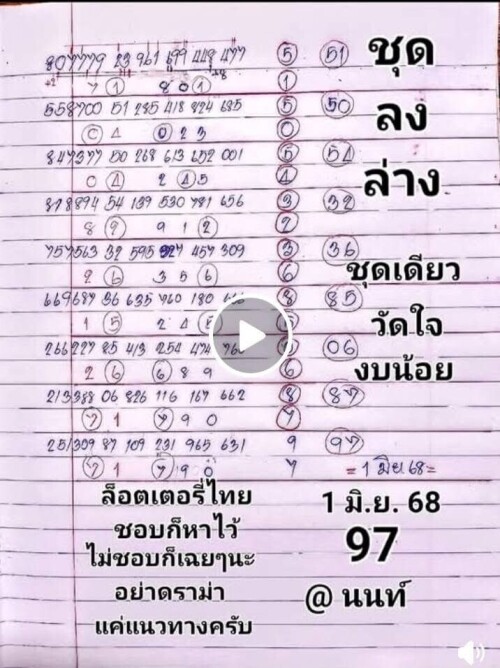 807779 23 961 699 448 477 5 51 ชุด
7 1 8 0 1 1
558700 51 285 418 824 635 5 50
0 4 0 2 3 0 ลง
847377 50 268 613 652 001 5 54
0 4 2 4 5 4 ล่าง
878894 54 139 530 781 656 3 32
8 2 9 1 2 2
757563 32 595 927 457 309 3 36
2 6 3 5 6 6 ชุดเดียว
669687 36 635 760 180 8 85
1 5 2 4 วัดใจ
266227 85 413 254 474 760 06
2 6 6 8 9 6 งบน้อย
213388 06 826 116 167 662 8 87
7 1 7 9 0 7
251309 87 109 231 965 631 9 97
7 1 7 9 0 7 = 1 มิย 68 =
ล็อตเตอรี่ไทย 1 มิ.ย. 68
ชอบก็หาไว้
ไม่ชอบก็เฉยๆนะ 97
อย่าดราม่า @ นนท์
แค่แนวทางครับ